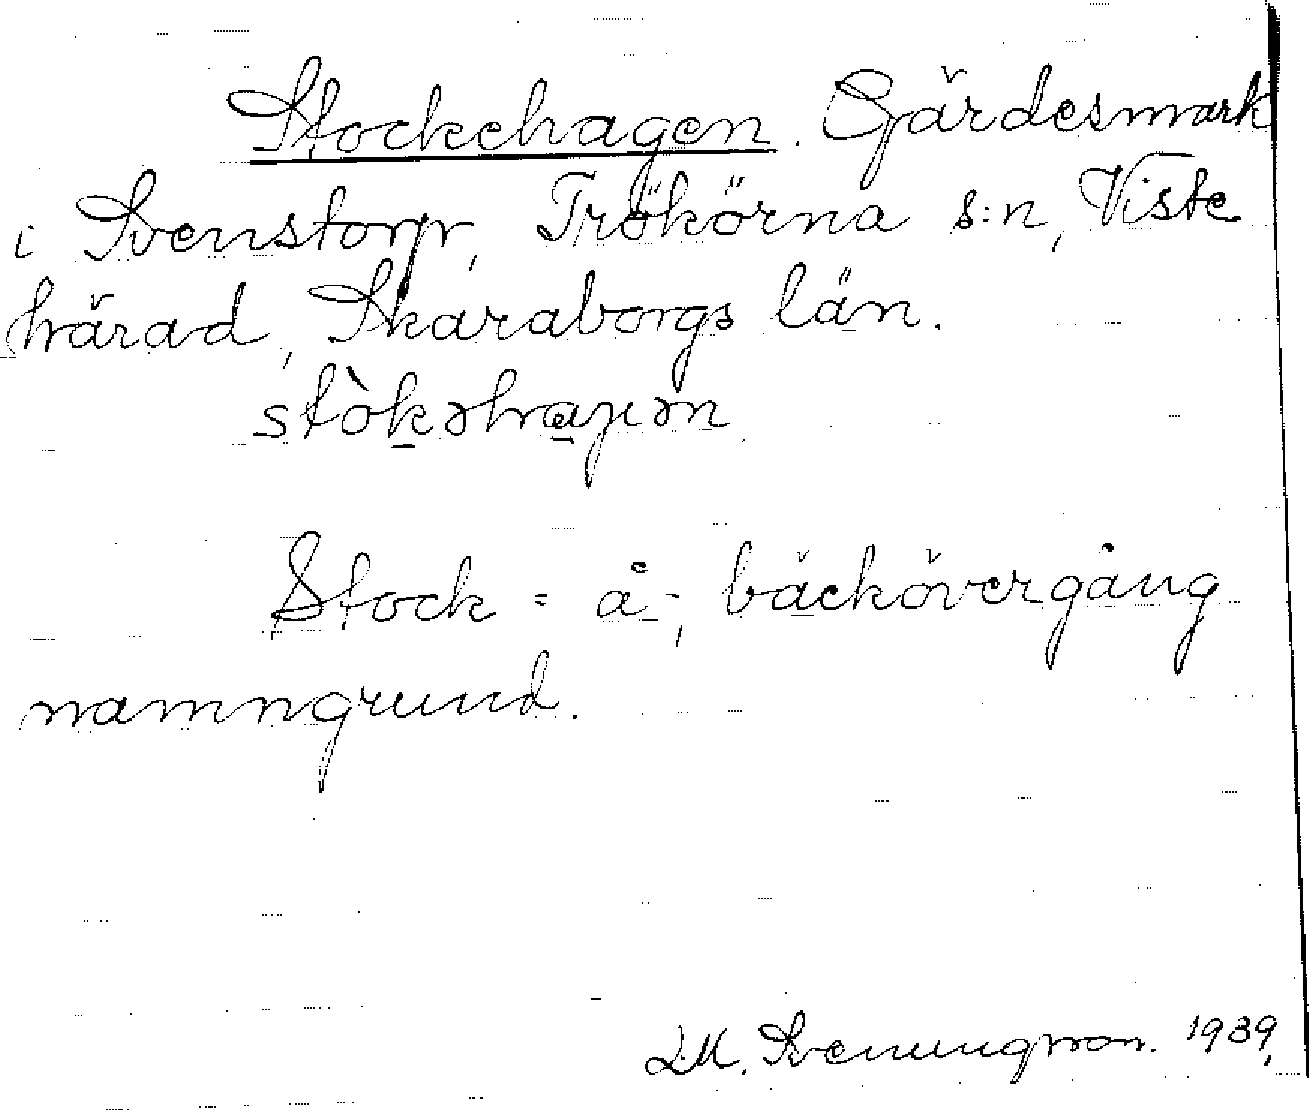 Stockehagen. Gärdesmark
i Svenstorp, Trökörna s:n, Viste
härad, Skaraborgs län.
stòkəhaɡən
Stock = å-, bäckövergång
namngrund.
M. Svenungsson. 1939.